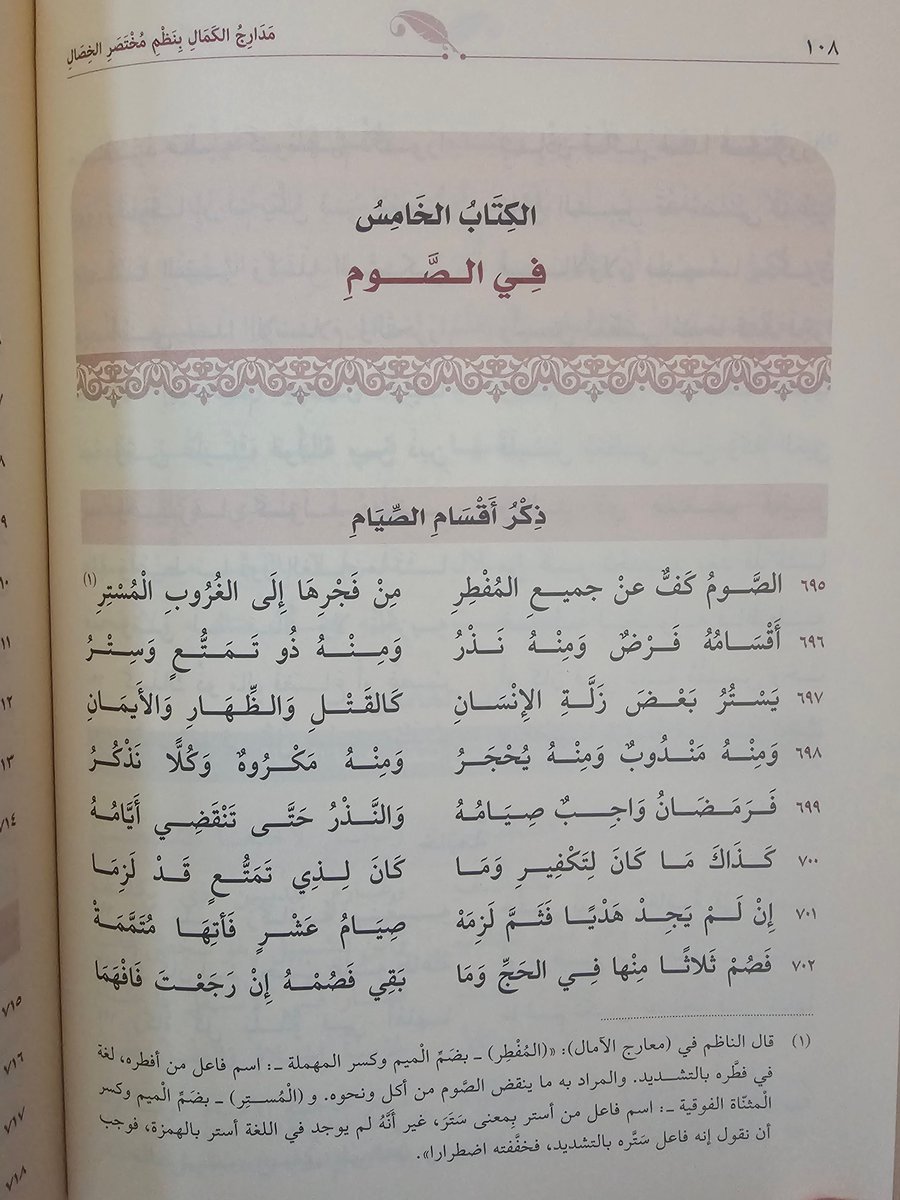 ١٠٨
مَدَارِجُ الكَمَالِ بِنَظْمِ مُخْتَصَرِ الخِصَالِ
الكِتَابُ الخَامِسُ
فِي الصَّومِ
ذِكْرُ أَقْسَامِ الصِّيَامِ
٦٩٥ الصَّومُ كَفٌّ عنْ جميعِ المُفْطِرِ مِنْ فَجْرِهَا إِلَى الغُرُوبِ الْمُسْتِرِ(١)
٦٩٦ أَقْسَامُهُ فَرْضٌ وَمِنْهُ نَذْرُ وَمِنْهُ ذُو تَمَتُّعٍ وَسِتْرُ
٦٩٧ يَسْتُرُ بَعْضَ زَلَّةِ الإِنْسَانِ كَالقَتْلِ وَالظِّهَارِ وَالأَيمَانِ
٦٩٨ وَمِنْهُ مَنْدُوبٌ وَمِنْهُ يُحْجَرُ وَمِنْهُ مَكْرُوهٌ وَكُلًّا نَذْكُرُ
٦٩٩ فَرَمَضَانُ وَاجِبٌ صِيَامُهُ وَالنَّذْرُ حَتَّى تَنْقَضِي أَيَّامُهُ
٧٠٠ كَذَاكَ مَا كَانَ لِتَكْفِيرِ وَمَا كَانَ لِذِي تَمَتُّعٍ قَدْ لَزِمَا
٧٠١ إِنْ لَمْ يَجِدْ هَدْيًا فَثَمَّ لَزِمَهْ صِيَامُ عَشْرٍ فَأْتِهَا مُتَمَّمَةْ
٧٠٢ فَصُمْ ثَلاثًا مِنْها فِي الحَجِّ وَمَا بَقِي فَصُمْهُ إِنْ رَجَعْتَ فَافْهَمَا
(١) قال الناظم في (معارج الآمال): «(المُفْطِر) ـ بضَمِّ الْميم وكسر المهملة ـ: اسم فاعل من أفطره، لغة
في فطَّره بالتشديد. والمراد به ما ينقض الصَّوم من أكل ونحوه. و (الْمُستِر) ـ بضَمِّ الْميم وكسر
الْمثنّاة الفوقية ـ: اسم فاعل من أستر بمعنى سَتَرَ، غير أنَّهُ لم يوجد في اللغة أستر بالهمزة، فوجب
أن نقول إنه فاعل ستَّره بالتشديد، فخفَّفته اضطرارا».
٩
١٠
١١
١٢
١٣
٧١٤
٧١٥
٧١٦
٧١٧
٧١٨